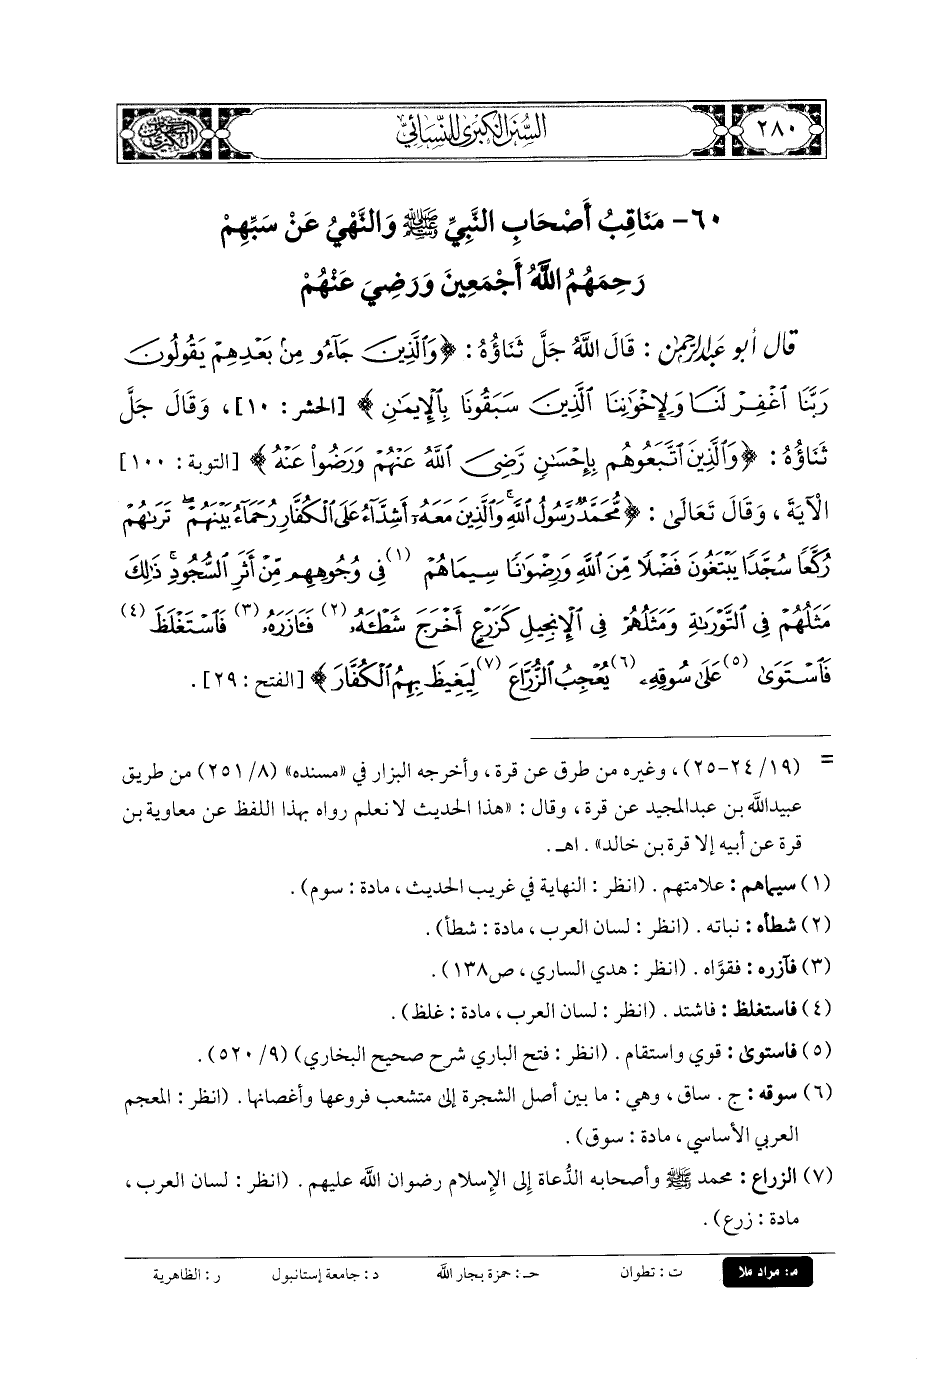 ٢٨٠
السنن الكبرى للنسائي
٦٠- مَنَاقِبُ أَصْحَابِ النَّبِيِّ ﷺ وَالنَّهْيُ عَنْ سَبِّهِمْ
رَحِمَهُمُ اللَّهُ أَجْمَعِينَ وَرَضِيَ عَنْهُمْ
قال أبو عبد الرحمن : قَالَ اللَّهُ جَلَّ ثَنَاؤُهُ : ﴿وَٱلَّذِينَ جَآءُو مِنۢ بَعْدِهِمْ يَقُولُونَ
رَبَّنَا ٱغْفِرْ لَنَا وَلِإِخْوَٰنِنَا ٱلَّذِينَ سَبَقُونَا بِٱلْإِيمَٰنِ﴾ [الحشر : ١٠] ، وَقَالَ جَلَّ
ثَنَاؤُهُ : ﴿وَٱلَّذِينَ ٱتَّبَعُوهُم بِإِحْسَٰنٍ رَّضِىَ ٱللَّهُ عَنْهُمْ وَرَضُوا۟ عَنْهُ﴾ [التوبة : ١٠٠]
الْآيَةَ ، وَقَالَ تَعَالَىٰ : ﴿مُّحَمَّدٌ رَّسُولُ ٱللَّهِ ۚ وَٱلَّذِينَ مَعَهُۥٓ أَشِدَّآءُ عَلَى ٱلْكُفَّارِ رُحَمَآءُ بَيْنَهُمْ ۖ تَرَىٰهُمْ
رُكَّعًا سُجَّدًا يَبْتَغُونَ فَضْلًا مِّنَ ٱللَّهِ وَرِضْوَٰنًا سِيمَاهُمْ (١) فِى وُجُوهِهِم مِّنْ أَثَرِ ٱلسُّجُودِ ۚ ذَٰلِكَ
مَثَلُهُمْ فِى ٱلتَّوْرَىٰةِ وَمَثَلُهُمْ فِى ٱلْإِنجِيلِ كَزَرْعٍ أَخْرَجَ شَطْـَٔهُۥ (٢) فَـَٔازَرَهُۥ (٣) فَٱسْتَغْلَظَ (٤)
فَٱسْتَوَىٰ (٥) عَلَىٰ سُوقِهِۦ (٦) يُعْجِبُ ٱلزُّرَّاعَ (٧) لِيَغِيظَ بِهِمُ ٱلْكُفَّارَ﴾ [الفتح : ٢٩] .
= (١٩/ ٢٤-٢٥) ، وغيره من طرق عن قرة ، وأخرجه البزار في «مسنده» (٨/ ٢٥١) من طريق
عبيدالله بن عبدالمجيد عن قرة ، وقال : «هذا الحديث لا نعلم رواه بهذا اللفظ عن معاوية بن
قرة عن أبيه إلا قرة بن خالد» . اهـ .
(١) سيماهم : علامتهم . (انظر : النهاية في غريب الحديث ، مادة : سوم) .
(٢) شطأه : نباته . (انظر : لسان العرب ، مادة : شطأ) .
(٣) فآزره : فقوَّاه . (انظر : هدي الساري ، ص١٣٨) .
(٤) فاستغلظ : فاشتد . (انظر : لسان العرب ، مادة : غلظ) .
(٥) فاستوىٰ : قوي واستقام . (انظر : فتح الباري شرح صحيح البخاري) (٩/ ٥٢٠) .
(٦) سوقه : ج . ساق ، وهي : ما بين أصل الشجرة إلى متشعب فروعها وأغصانها . (انظر : المعجم
العربي الأساسي ، مادة : سوق) .
(٧) الزراع : محمد ﷺ وأصحابه الدُّعاة إلى الإسلام رضوان الله عليهم . (انظر : لسان العرب ،
مادة : زرع) .
م: مراد ملا ت : تطوان حـ : حمزة بجار الله د : جامعة إستانبول ر : الظاهرية